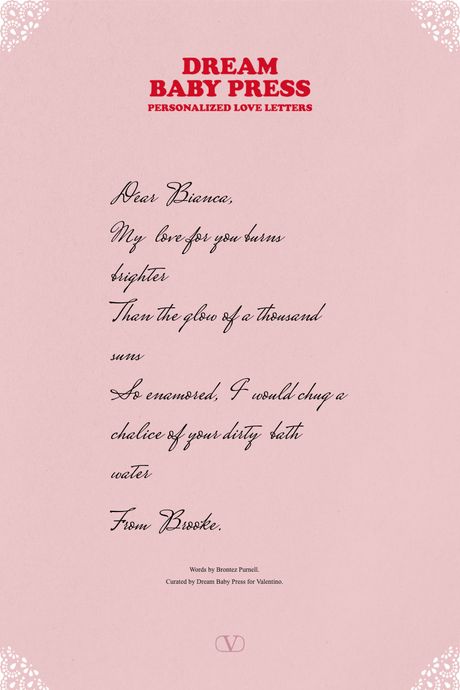 DREAM
BABY PRESS
PERSONALIZED LOVE LETTERS
Dear Bianca,
My love for you burns
brighter
Than the glow of a thousand
suns
So enamored, I would chug a
chalice of your dirty bath
water
From Brooke.
Words by Brontez Purnell.
Curated by Dream Baby Press for Valentino.
V